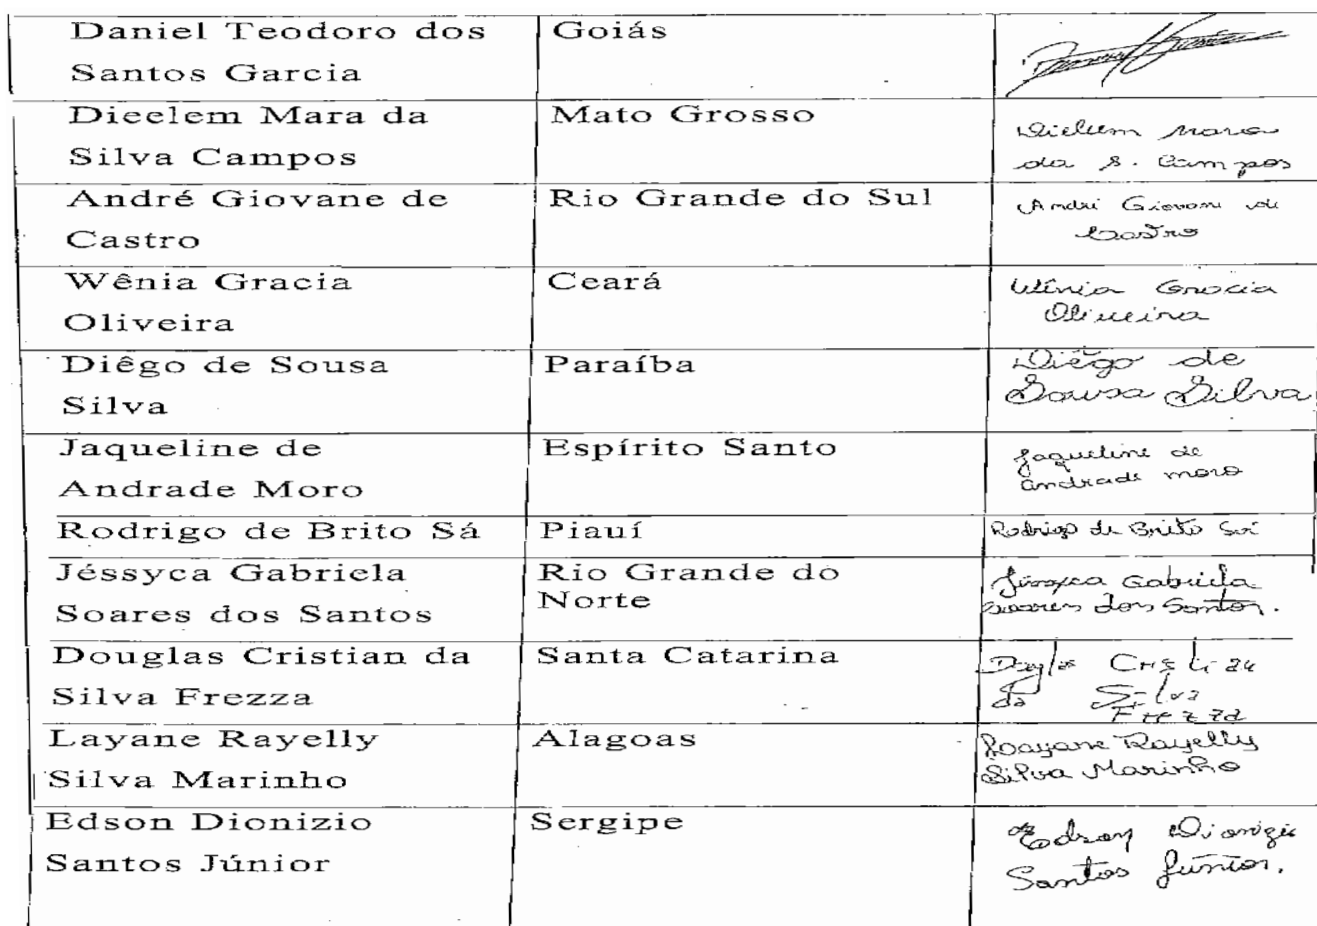 Daniel Teodoro dos
Santos Garcia
Goiás
Dieelem Mara da
Silva Campos
Mato Grosso
Dielem Mara
da S. Campos
André Giovane de
Castro
Rio Grande do Sul
André Giovani de
Castro
Wênia Gracia
Oliveira
Ceará
Wênia Gracia
Oliveira
Diêgo de Sousa
Silva
Paraíba
Diêgo de
Sousa Silva
Jaqueline de
Andrade Moro
Espírito Santo
Jaqueline de
Andrade Moro
Rodrigo de Brito Sá
Piauí
Rodrigo de Brito Sá
Jéssyca Gabriela
Soares dos Santos
Rio Grande do
Norte
Jéssyca Gabriela
Soares dos Santos.
Douglas Cristian da
Silva Frezza
Santa Catarina
Douglas Cristian
da Silva
Frezza
Layane Rayelly
Silva Marinho
Alagoas
Layane Rayelly
Silva Marinho
Edson Dionizio
Santos Júnior
Sergipe
Edson Dionizio
Santos Júnior.